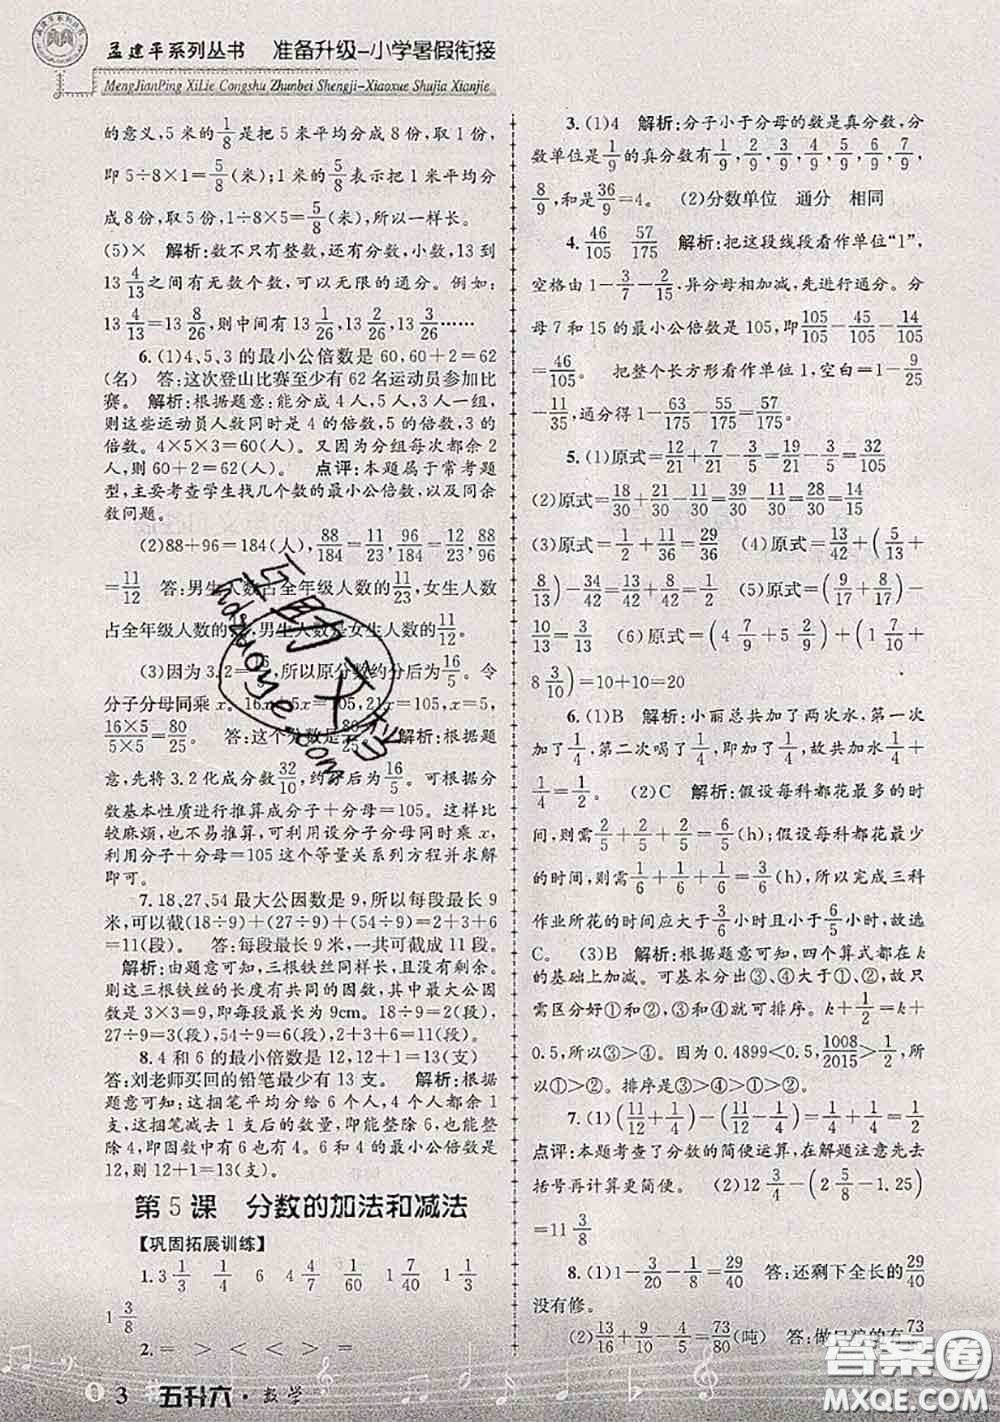 孟建平系列丛书 准备升级-小学暑假衔接
MengJianPing XiLie Congshu Zhunbei Shengji-Xiaoxue Shujia Xianjie
的意义,5 米的 1/8 是把 5 米平均分成 8 份,取 1 份,
即 5÷8×1=5/8(米);1 米的 5/8 表示把 1 米平均分
成 8 份,取 5 份,1÷8×5=5/8(米),所以一样长。
(5)× 解析:数不只有整数,还有分数,小数,13 到
13 4/13 之间有无数个数,可以无限的通分。例如:
13 4/13=13 8/26,则中间有 13 1/26,13 2/26,13 3/26……
6.(1)4、5、3 的最小公倍数是 60,60+2=62
(名) 答:这次登山比赛至少有 62 名运动员参加比
赛。 解析:根据题意:能分成 4 人,5 人,3 人一组,
则这些运动员人数同时是 4 的倍数,5 的倍数,3 的
倍数。4×5×3=60(人)。又因为分组每次都余 2
人,则 60+2=62(人)。 点评:本题属于常考题
型,主要考查学生找几个数的最小公倍数,以及同余
数问题。
(2)88+96=184(人),88/184=11/23,96/184=12/23,88/96
=11/12 答:男生人数占全年级人数的 11/23,女生人数
占全年级人数的 ,男生人数是女生人数的 11/12。
(3)因为 3.2= ,所以原分数约分后为 16/5。令
分子分母同乘 x。16x+5x=105,21x=105,x=5,
16×5/5×5=80/25。 答:这个分数是 80/25。 解析:根据题
意,先将 3.2 化成分数 32/10,约分后为 16/5。可以根据分
数基本性质进行推算成分子+分母=105。这样比
较麻烦,也不易推算,可利用设分子分母同时乘 x,
利用分子+分母=105 这个等量关系列方程并求解
即可。
7.18、27、54 最大公因数是 9,所以每段最长 9
米,可以截(18÷9)+(27÷9)+(54÷9)=2+3+6
=11(段)。 答:每段最长 9 米,一共可截成 11 段。
解析:由题意可知,三根铁丝同样长,且没有剩余。
则这三根铁丝的长度有共同的因数,其中最大公因
数是 3×3=9,即每段最长为 9cm。18÷9=2(段),
27÷9=3(段),54÷9=6(段),2+3+6=11(段)。
8.4 和 6 的最小倍数是 12,12+1=13(支)
答:刘老师买回的铅笔最少有 13 支。 解析:根据
题意可知,这捆笔平均分给 6 个人,4 个人都余 1
支,这捆笔减去 1 支后的数量,即能整除 6,也能整
除 4,即因数中有 6 也有 4。6 和 4 的最小公倍数是
12,则 12+1=13(支)。
第 5 课 分数的加法和减法
【巩固拓展训练】
1.3 1/3 1/4 6 4 4/7 1/60 1 1/40 1 1/3
1 3/8
2.= > < < > =
3.(1)4 解析:分子小于分母的数是真分数,分
数单位是 1/9 的真分数有 1/9,2/9,3/9,4/9,5/9,6/9,7/9,
8/9,和是 36/9=4。 (2)分数单位 通分 相同
4.46/105 57/175 解析:把这段线段看作单位“1”,
空格有 1-3/7-2/15,异分母相加减,进行通分。分
母 7 和 15 的最小公倍数是 105,即 105/105-45/105-14/105
=46/105。 把整个长方形看作单位 1,空白=1-9/25
-11/35,通分得 1-63/175-55/175=57/175。
5.(1)原式=12/21+7/21-3/5=19/21-3/5=32/105
(2)原式=18/30+21/30-11/30=28/30=14/15
(3)原式=1/2+11/36=29/36 (4)原式=13/42+(5/13+
8/13)-1=13/42 (5)原式=(9/17+8/17)-(2/13+
10/13=3/13 (6)原式=(4 7/9+5 2/9)+(1 7/10+
8 3/10)=10+10=20
6.(1)B 解析:小丽总共加了两次水,第一次
加了 1/4,第二次喝了 1/4,即加了 1/4,故共加水 1/4+
1/4=1/2。 (2)C 解析:假设每科都花最多的时
间,则需 2/5+2/5+2/5=6/5(h);假设每科都花最少
的时间,则需 1/6+1/6+1/6=3/6(h),所以完成三科
作业所花的时间应大于 3/6 小时且小于 6/5 小时,故选
C。 (3)B 解析:根据题意可知,四个算式都在 k
的基础上加减。可基本分出③、④大于①、②,故只
需区分好①和②,③和④即可排序。k+1/2=k+
0.5,所以③>④。因为 0.4899<0.5,1008/2015>0.5,所
以①>②。排序是③>④>①>②。
7.(1)(11/12+1/4)-(11/12-1/4)=1/4+1/4=1/2
点评:本题考查了分数的简便运算,在解题注意先去
括号再计算更简便。 (2)12 3/4-(2 5/8-1.25)
=11 3/8
8.(1)1-3/20-1/8=29/40 答:还剩下全长的 29/40
没有修。
(2)13/16+9/16+ =73/80(吨) 答:做 的有 73
3 五升六·数学
答案圈
MXQE.COM